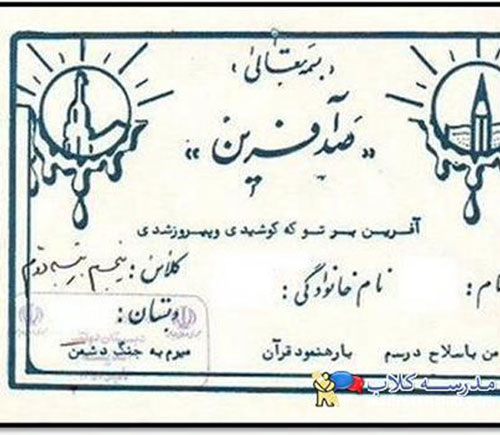 بسمه تعالی
« صد آفرین »
آفرین بر تو که کوشیدی و پیروز شدی
نام: نام خانوادگی: کلاس: پنجم
دبستان:
من با سلاح درسم با رهنمود قرآن میرم به جنگ دشمن
مدرسه کلاب